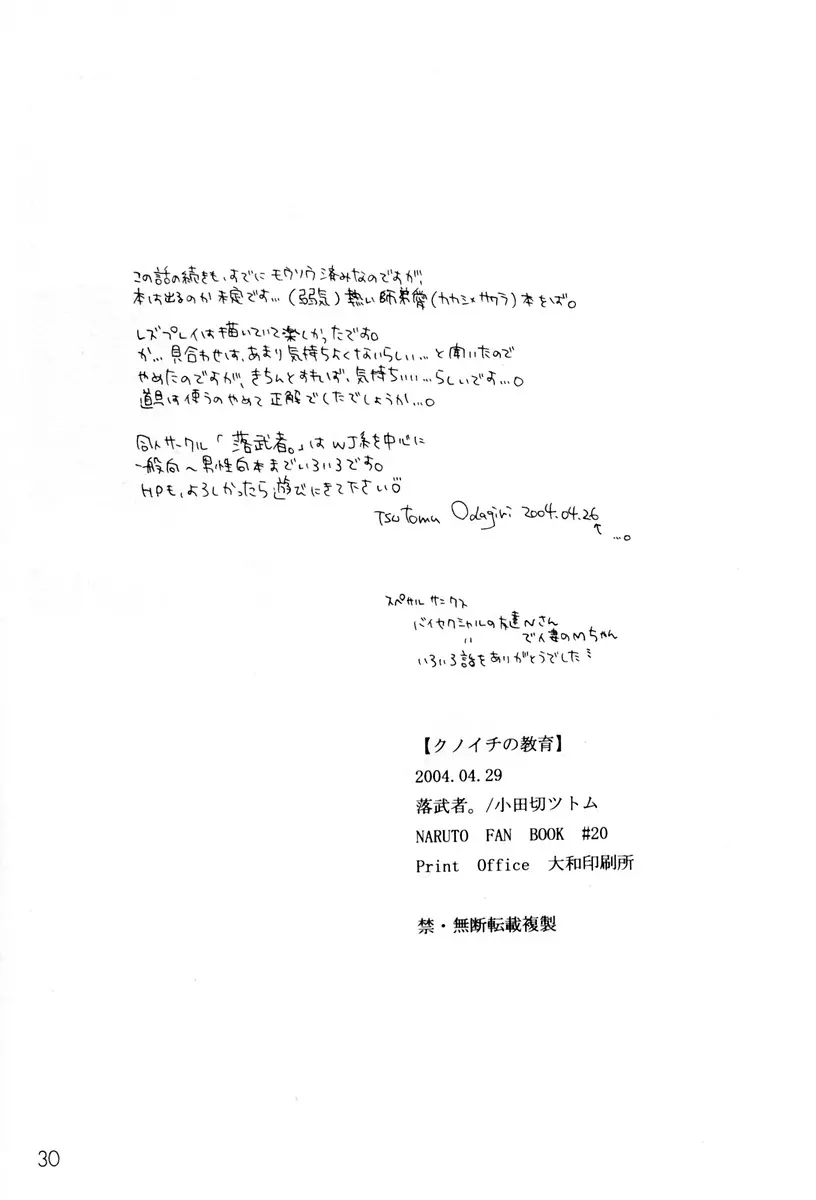 この話の続きも、すでにモウソウ済みなのですが、
本は出るのか未定です…(弱気)熱い師弟愛(カカシ×サクラ)本をば。
レズプレイは描いていて楽しかったです。
が…見合わせは、あまり気持ちよくないらしい…と聞いたので
やめたのですが、きちんとすれば、気持ちいい…らしいです…。
道具は使うのやめて正解でしたでしょうか…。
同人サークル「落武者。」はWJ系を中心に
一般向〜男性向本までいろいろです。
HPも、よろしかったら遊びにきて下さい
Tsutomu Odagiri 2004.04.26
↑…。
スペサルサンクス
バイセクシャルの友達Nさん
〃 で人妻のMちゃん
いろいろ話をありがとうでした
【クノイチの教育】
2004.04.29
落武者。/小田切ツトム
NARUTO FAN BOOK #20
Print Office 大和印刷所
禁・無断転載複製
30